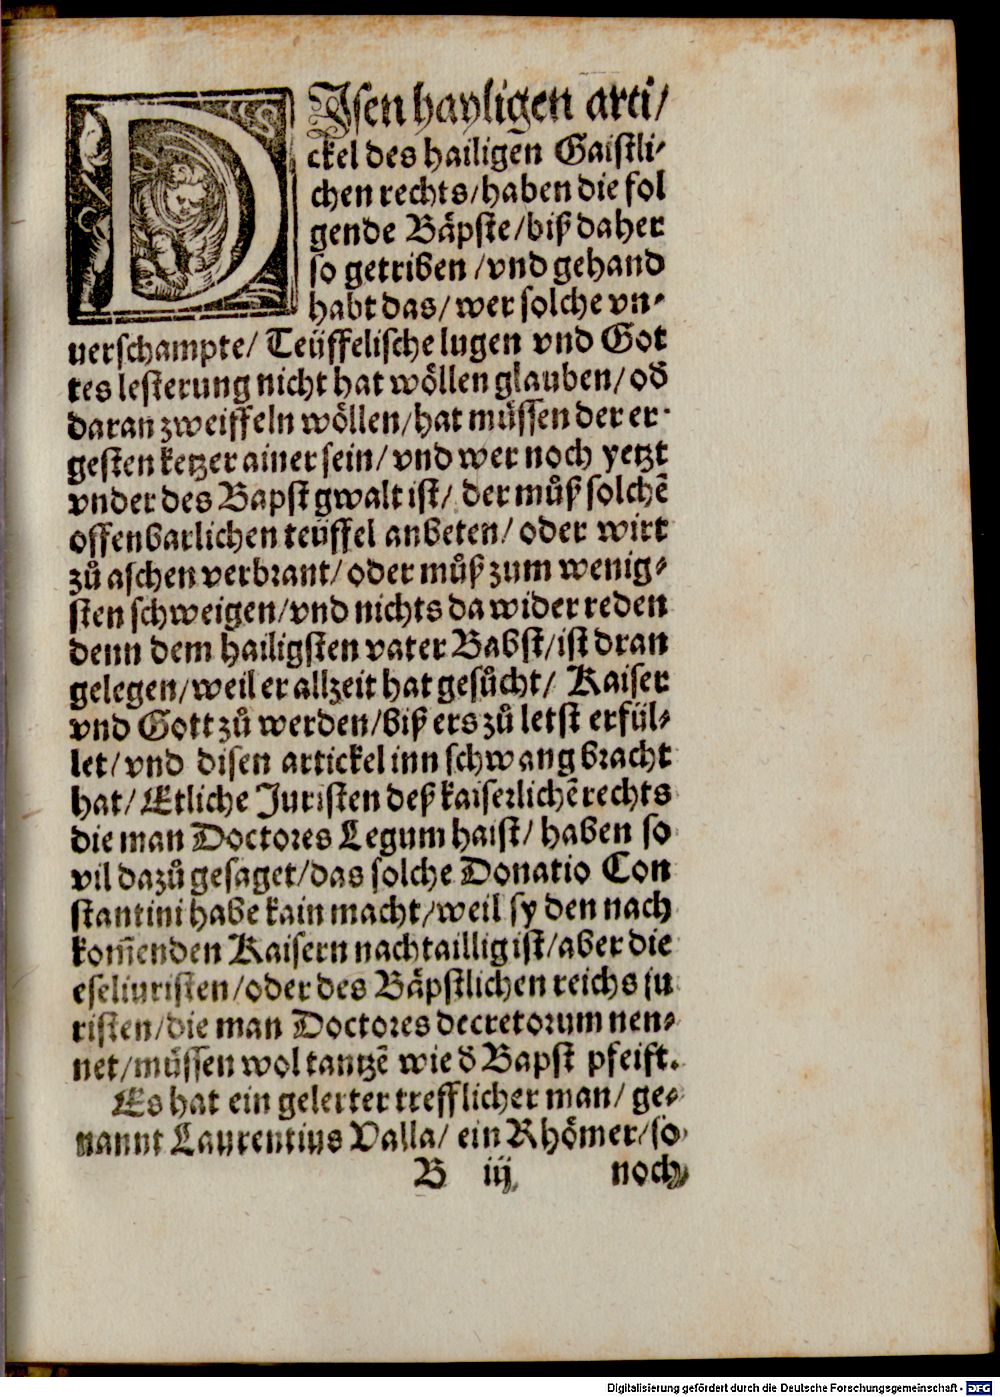 DIsen hayligen arti/
ckel des hailigen Gaistli⸗
chen rechts/haben die fol
gende Baͤpste/biß daher
so getriben /vnd gehand
habt das/ wer solche vn⸗
uerschampte/ Teüffelische lugen vnd Got
tes lesterung nicht hat woͤllen glauben/ od̄
daran zweiffeln woͤllen/hat muͤssen der er⸗
gesten ketzer ainer sein/ vnd wer noch yetzt
vnder des Bapst gwalt ist/ der muͦß solchē
offenbarlichen teüffel anbeten/ oder wirt
zuͦ aschen verbrant/ oder muͦß zum wenig⸗
sten schweigen/vnd nichts da wider reden
denn dem hailigsten vater Babst/ist dran
gelegen/weil er allzeit hat gesuͦcht/ Kaiser
vnd Gott zuͦ werden/biß ers zuͦ letst erfül⸗
let/vnd disen artickel inn schwang bracht
hat/ Etliche Juristen deß kaiserlichē rechts
die man Doctores Legum haist/ haben so
vil dazuͦ gesaget/das solche Donatio Con
stantini habe kain macht/weil sy den nach
kom̄enden Kaisern nachtaillig ist/aber die
eseliuristen/oder des Baͤpstlichen reichs ju
risten/die man Doctores decretorum nen⸗
net/muͤssen wol tantzē wie d̄ Bapst pfeift.
Es hat ein gelerter trefflicher man/ ge⸗
nannt Laurentius Valla/ ein Rhoͤmer/so
B iij noch
Digitalisierung gefördert durch die Deutsche Forschungsgemeinschaft - DFG